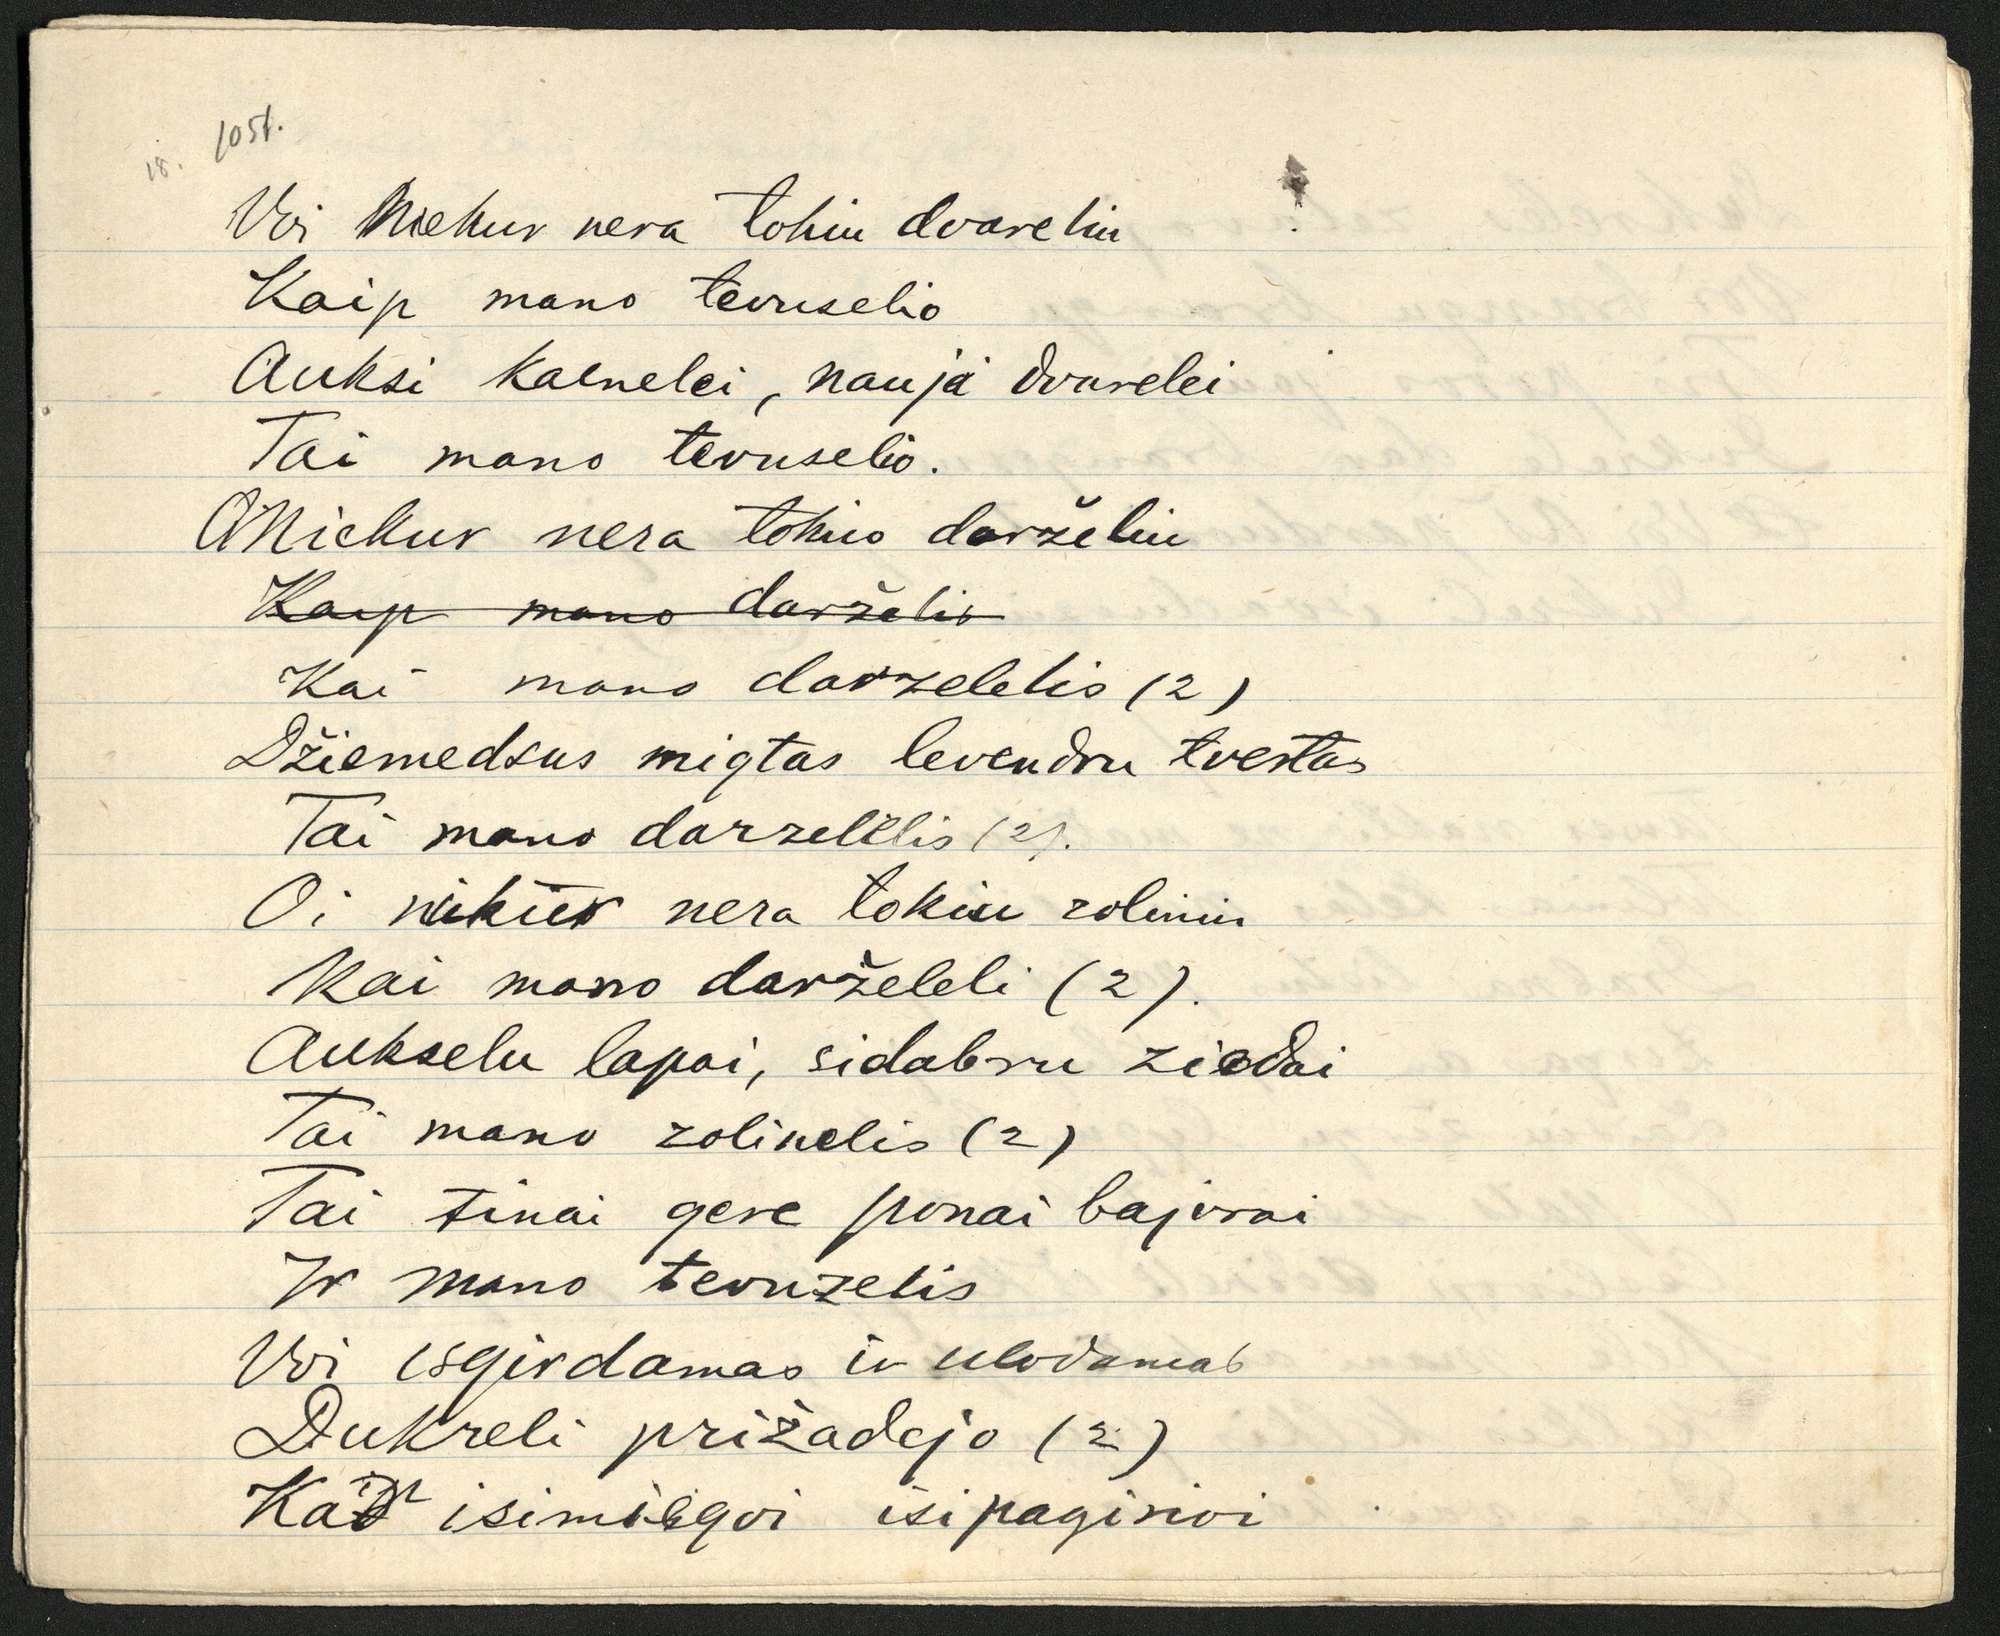 18. 1051.
Voi Niekur nera tokiu dvareliu
Kaip mano tevuselio
Auksi kaenelei, nauja dvarelei
Tai mano tevuselio.
O Niekur nera tokiu darželiu
Kaip mano darželis
Kai mano darzelelis (2)
Džiemedsus migtas levendru tvertas
Tai mano darzelėlis (2).
Oi niekur nera tokiu zoliniu
Kai mano darželeli (2).
Aukselu lapai, sidabru ziedai
Tai mano zolinelis (2)
Tai tinai gere ponai bajorai
Ir mano tevuzelis
Voi isgirdamas ir ulodamas
Dukreli prižadejo (2)
isipagirioi